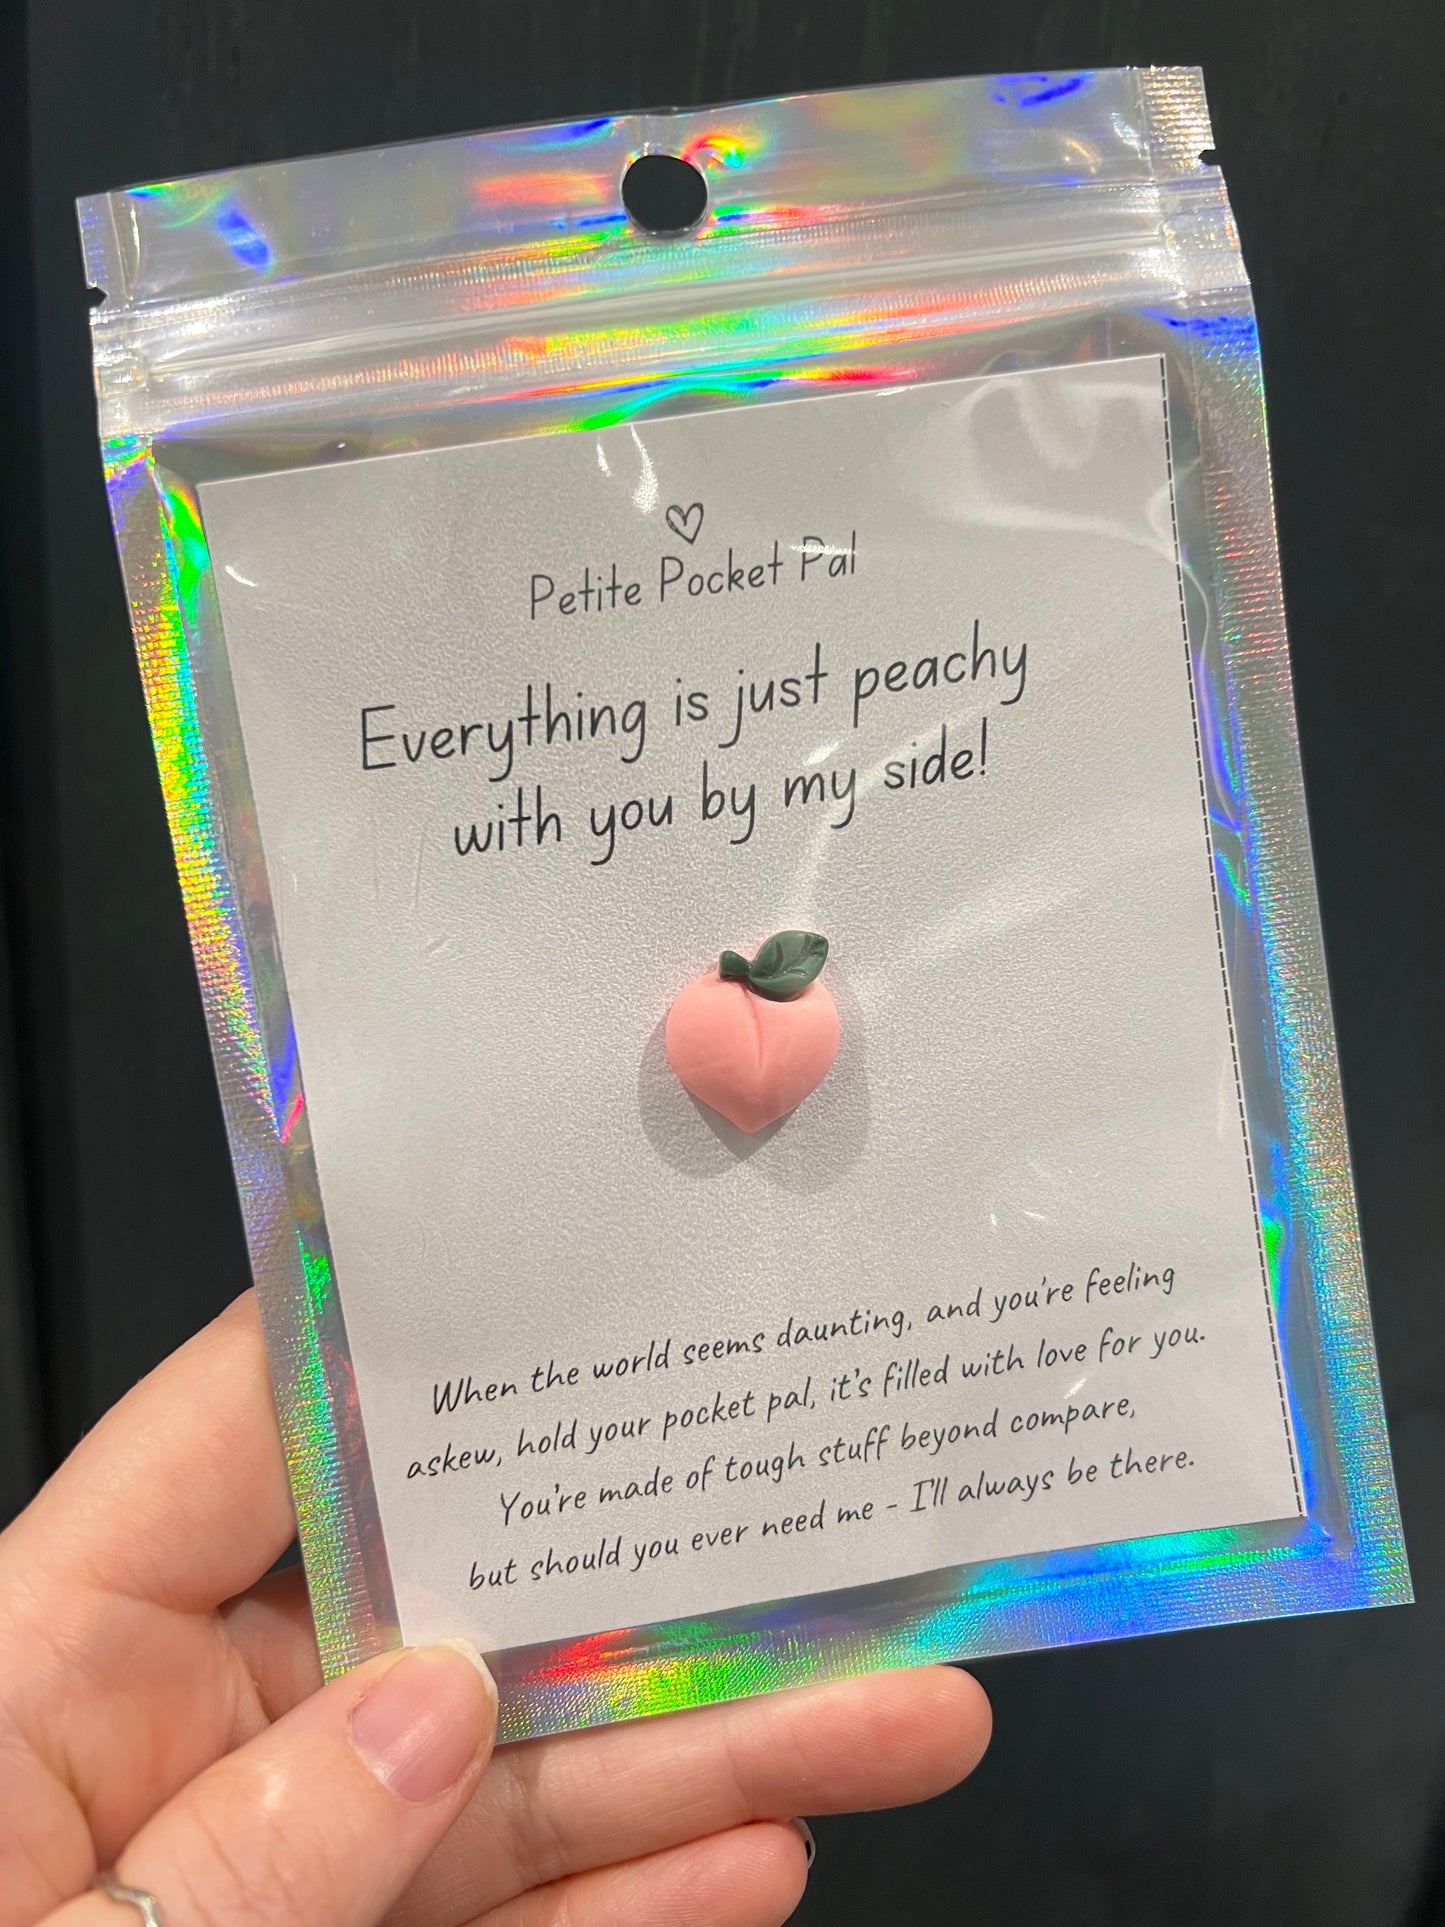 Petite Pocket Pal
Everything is just peachy
with you by my side!
When the world seems daunting, and you're feeling
askew, hold your pocket pal, it's filled with love for you.
You're made of tough stuff beyond compare,
but should you ever need me - I'll always be there.